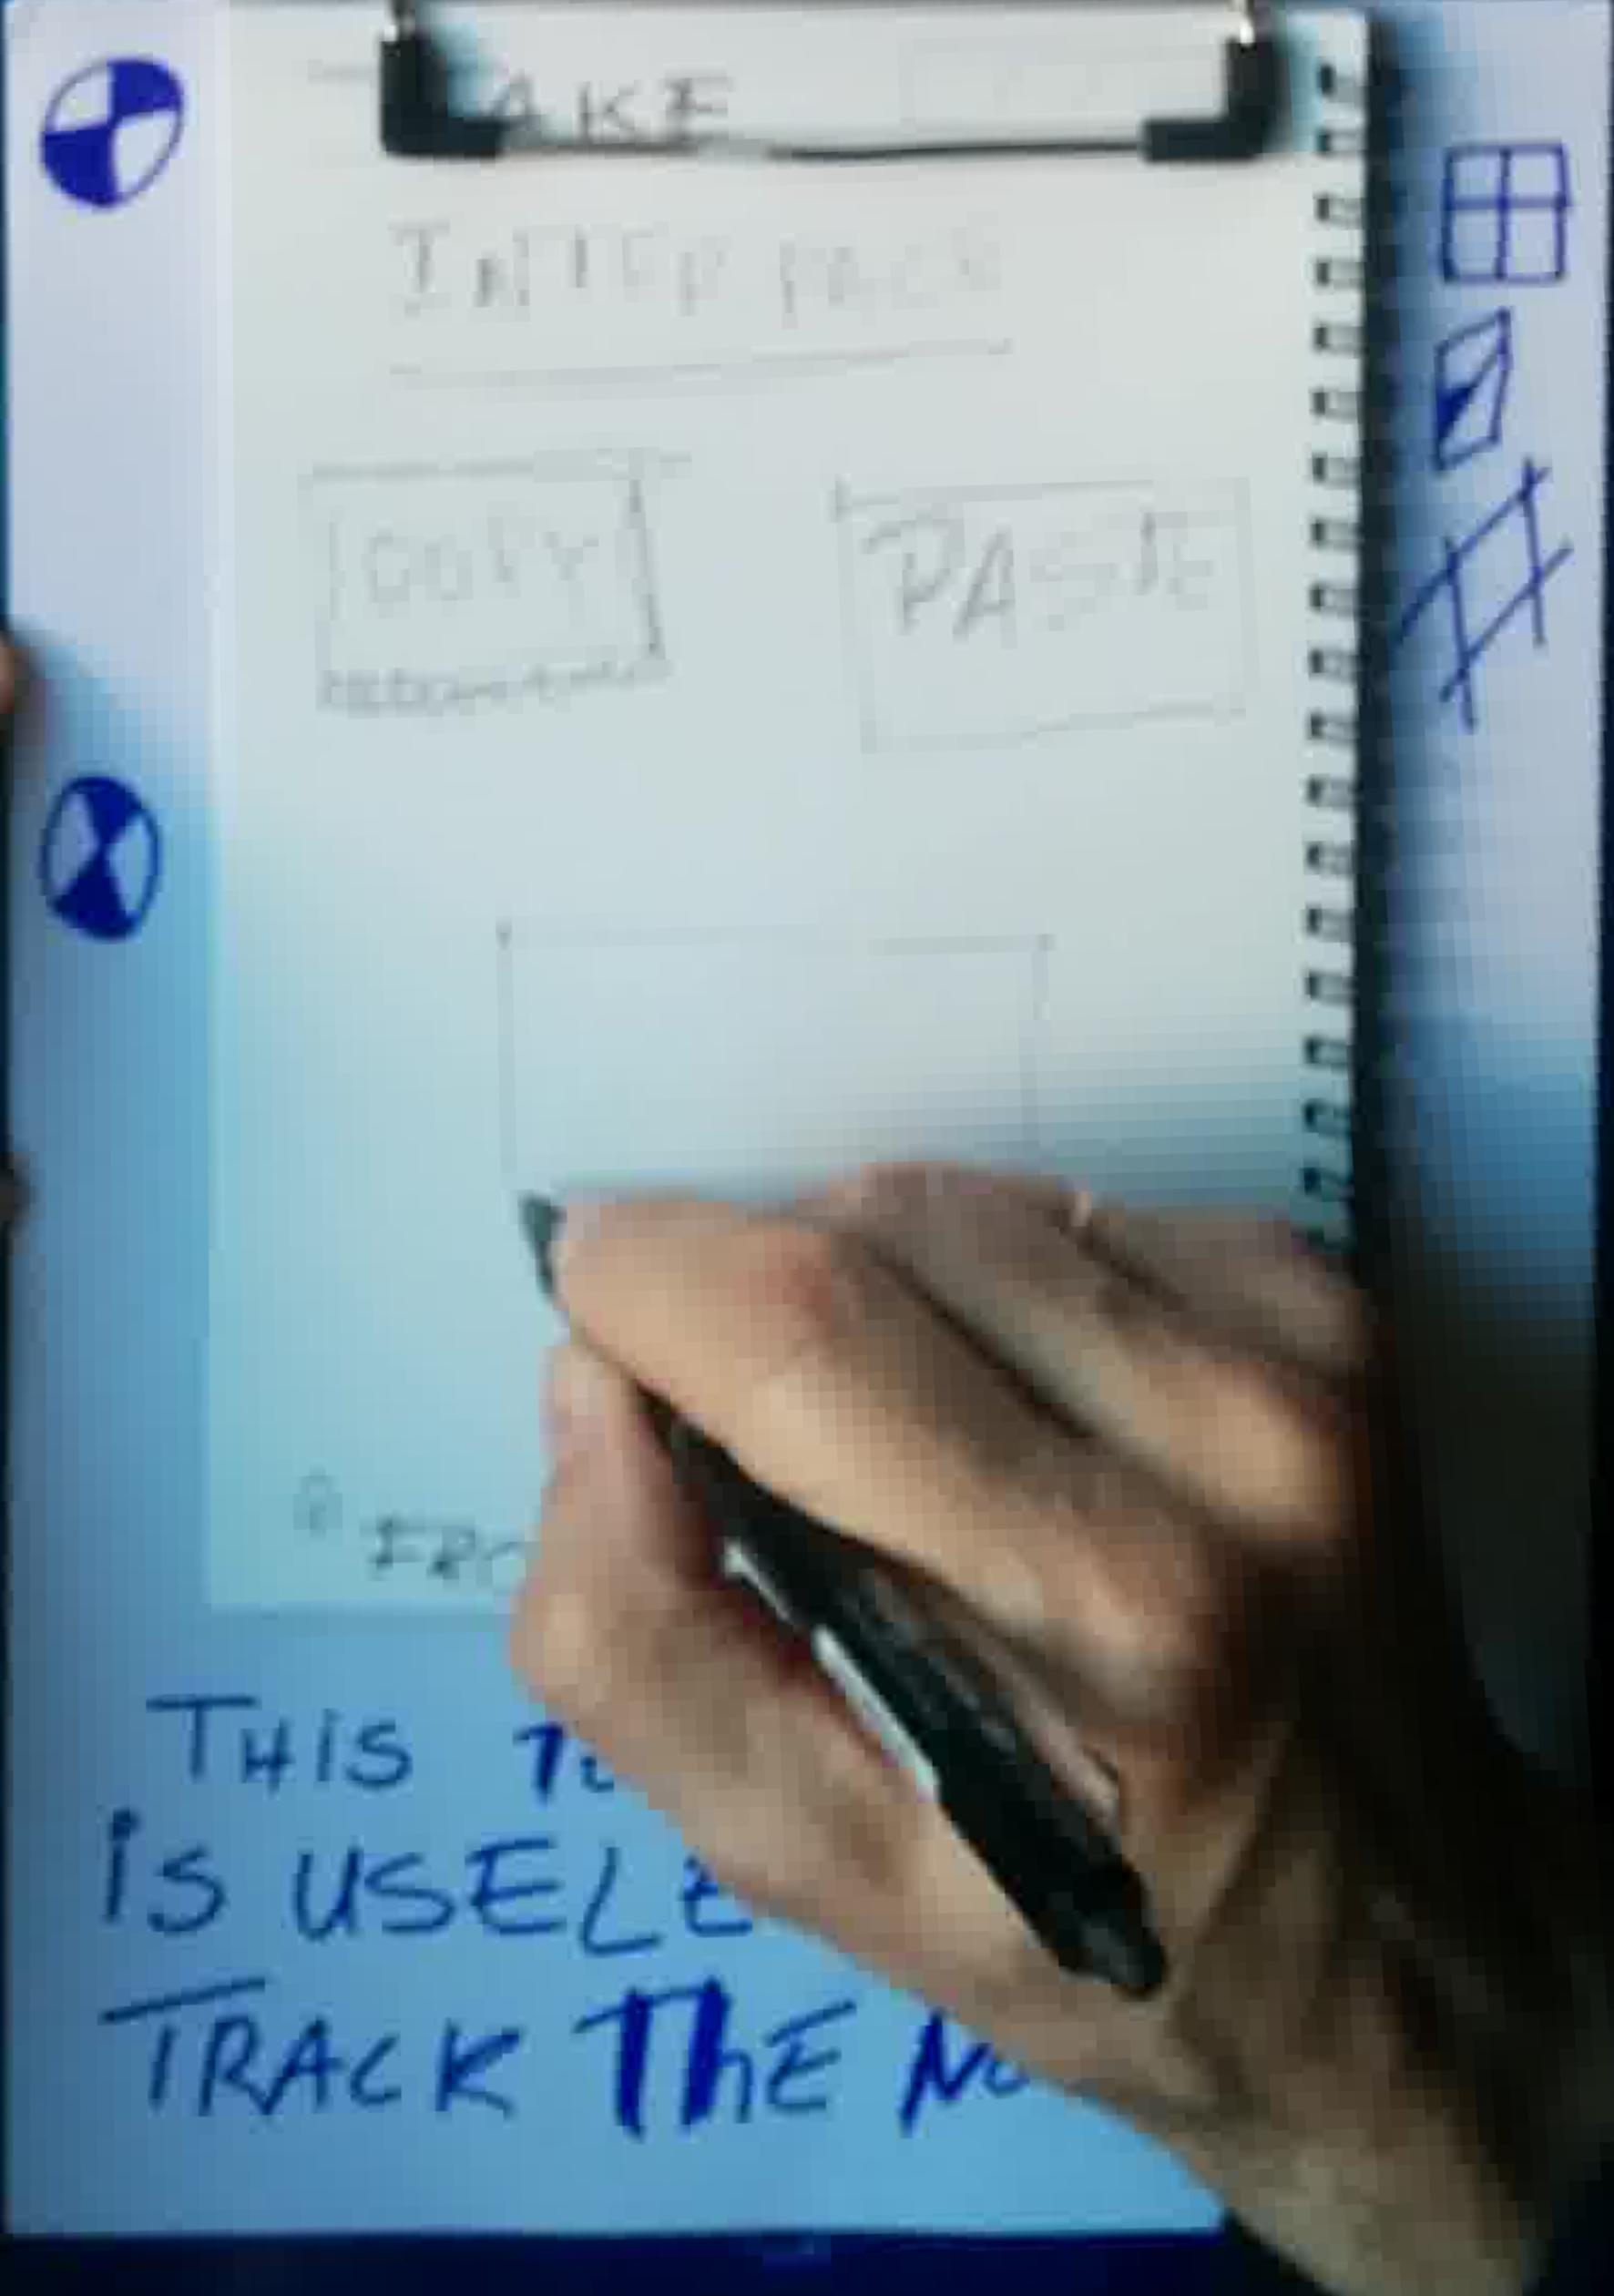 AKE
INTERFACE
COPY PASTE
THIS
is USELE
TRACK ThE No